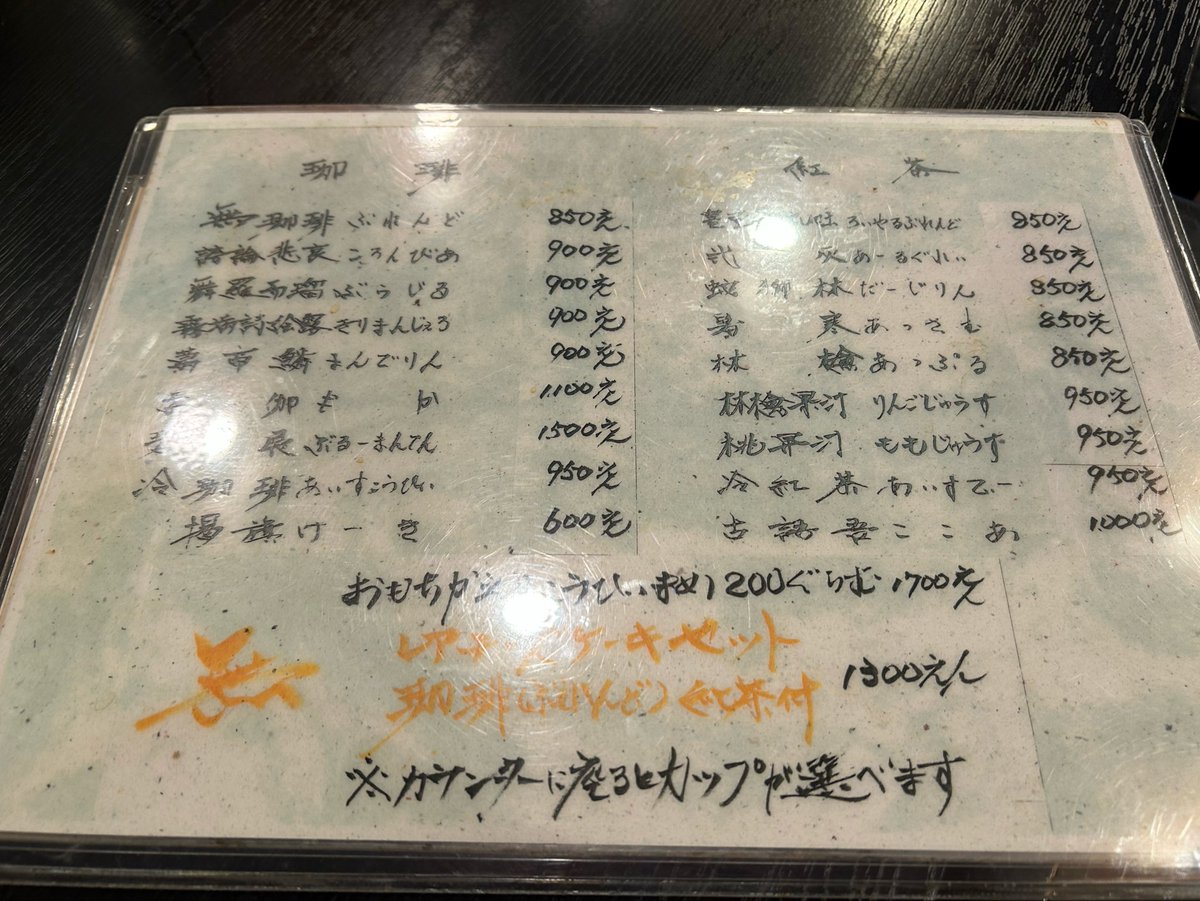 珈琲
無珈琲 ぶれんど 850元
悲哀 ころんびあ 900元
ぶらじる 900元
きりまんじぇろ 900元
まんでりん 900元
もか 1,100元
ぶるーまんてん 1,500元
冷珈琲 あいすこうひい 950元
揚旗 けーき 600元
紅茶
ろいやるぶれんど 850元
灰 あーるぐれい 850元
林 だーじりん 850元
暑寒 あっさむ 850元
林檎 あっぷる 850元
林檎果汁 りんごじゅうす 950元
桃果汁 ももじゅうす 950元
冷紅茶 あいすてぃー 950元
古語吾 ここあ 1,000元
おもちか うひいまめ 200ぐらむ 1700えん
無
レア ケーキセット
珈琲(ぶれんど)紅茶付 1300えん
※カウンターに座るとカップが選べます